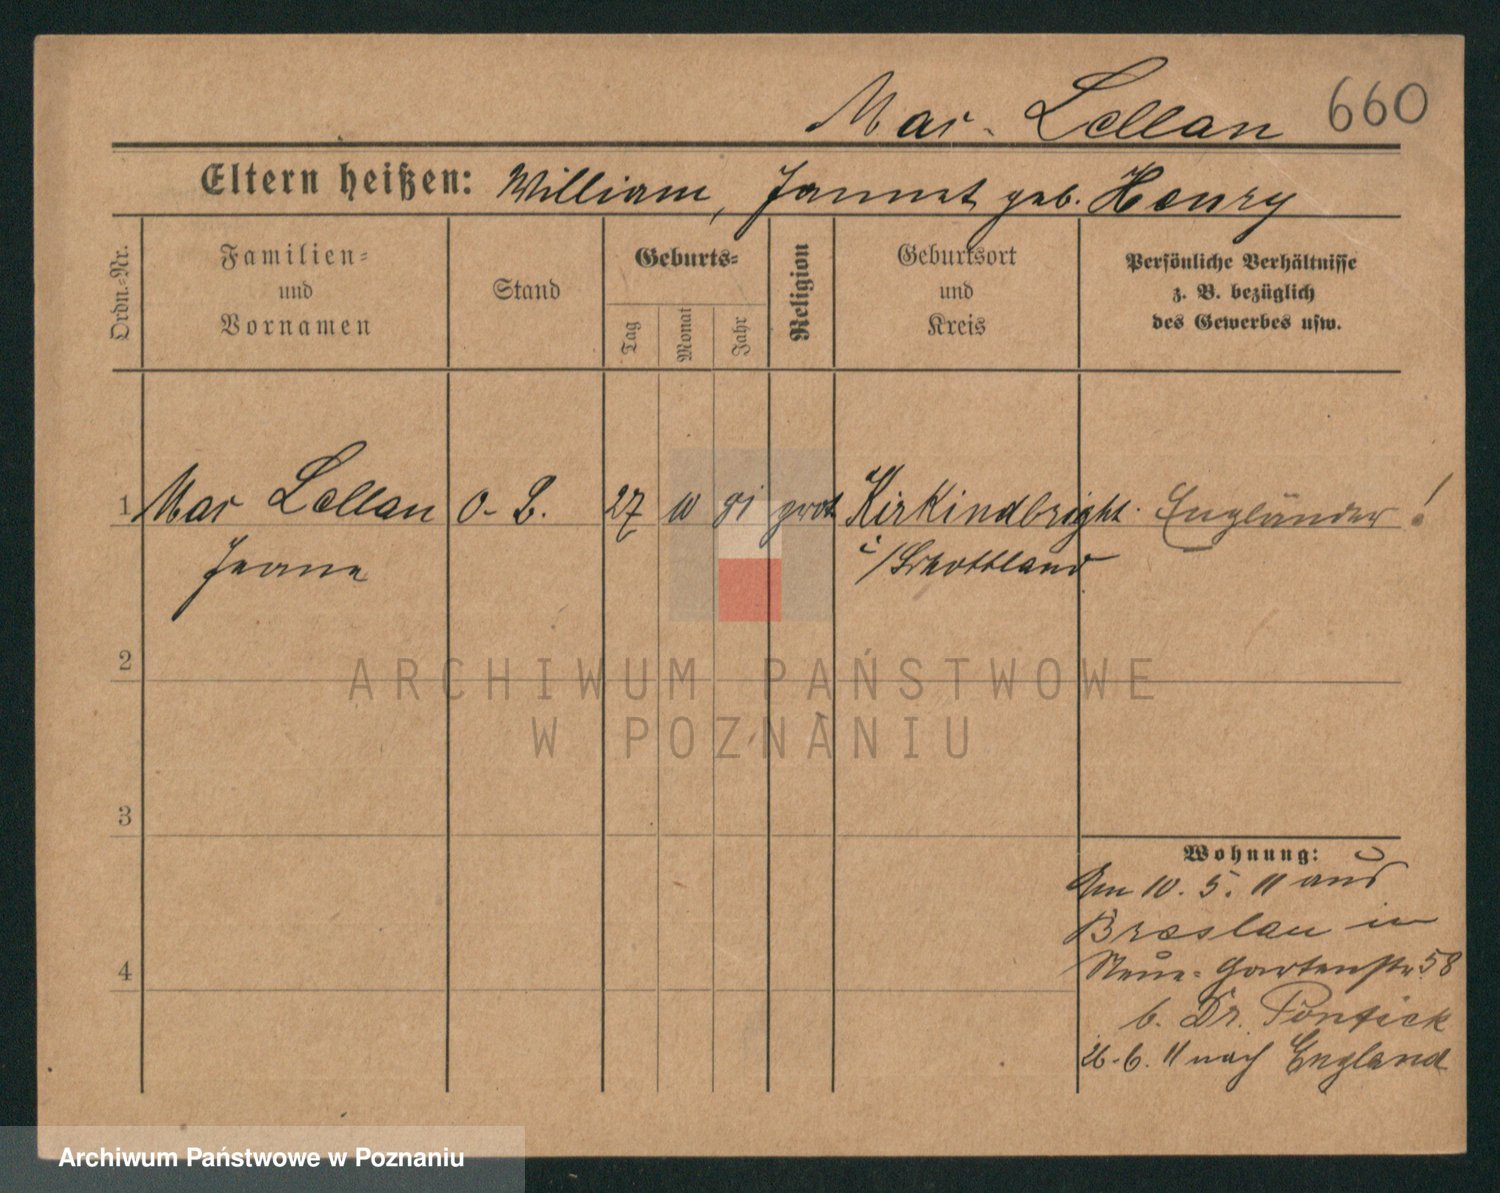 Mac-Lellan 660
Eltern heißen: William, Jannet geb. Henry
Ordn.-Nr.
Familien- und Vornamen
Stand
Geburts-
Tag
Monat
Jahr
Religion
Geburtsort und Kreis
Persönliche Verhältnisse
z. B. bezüglich
des Gewerbes usw.
1 Mac Lellan 27 10 Kirkindbright. Engländer!
Jeane i/Schottland
2
ARCHIWUM PAŃSTWOWE
W POZNANIU
3
Wohnung:
Am 10. 5. 11 aus
Breslau in
Neue-Gartenstr 58
b. Dr. Ponfick
26.6.11 nach England
4
Archiwum Państwowe w Poznaniu